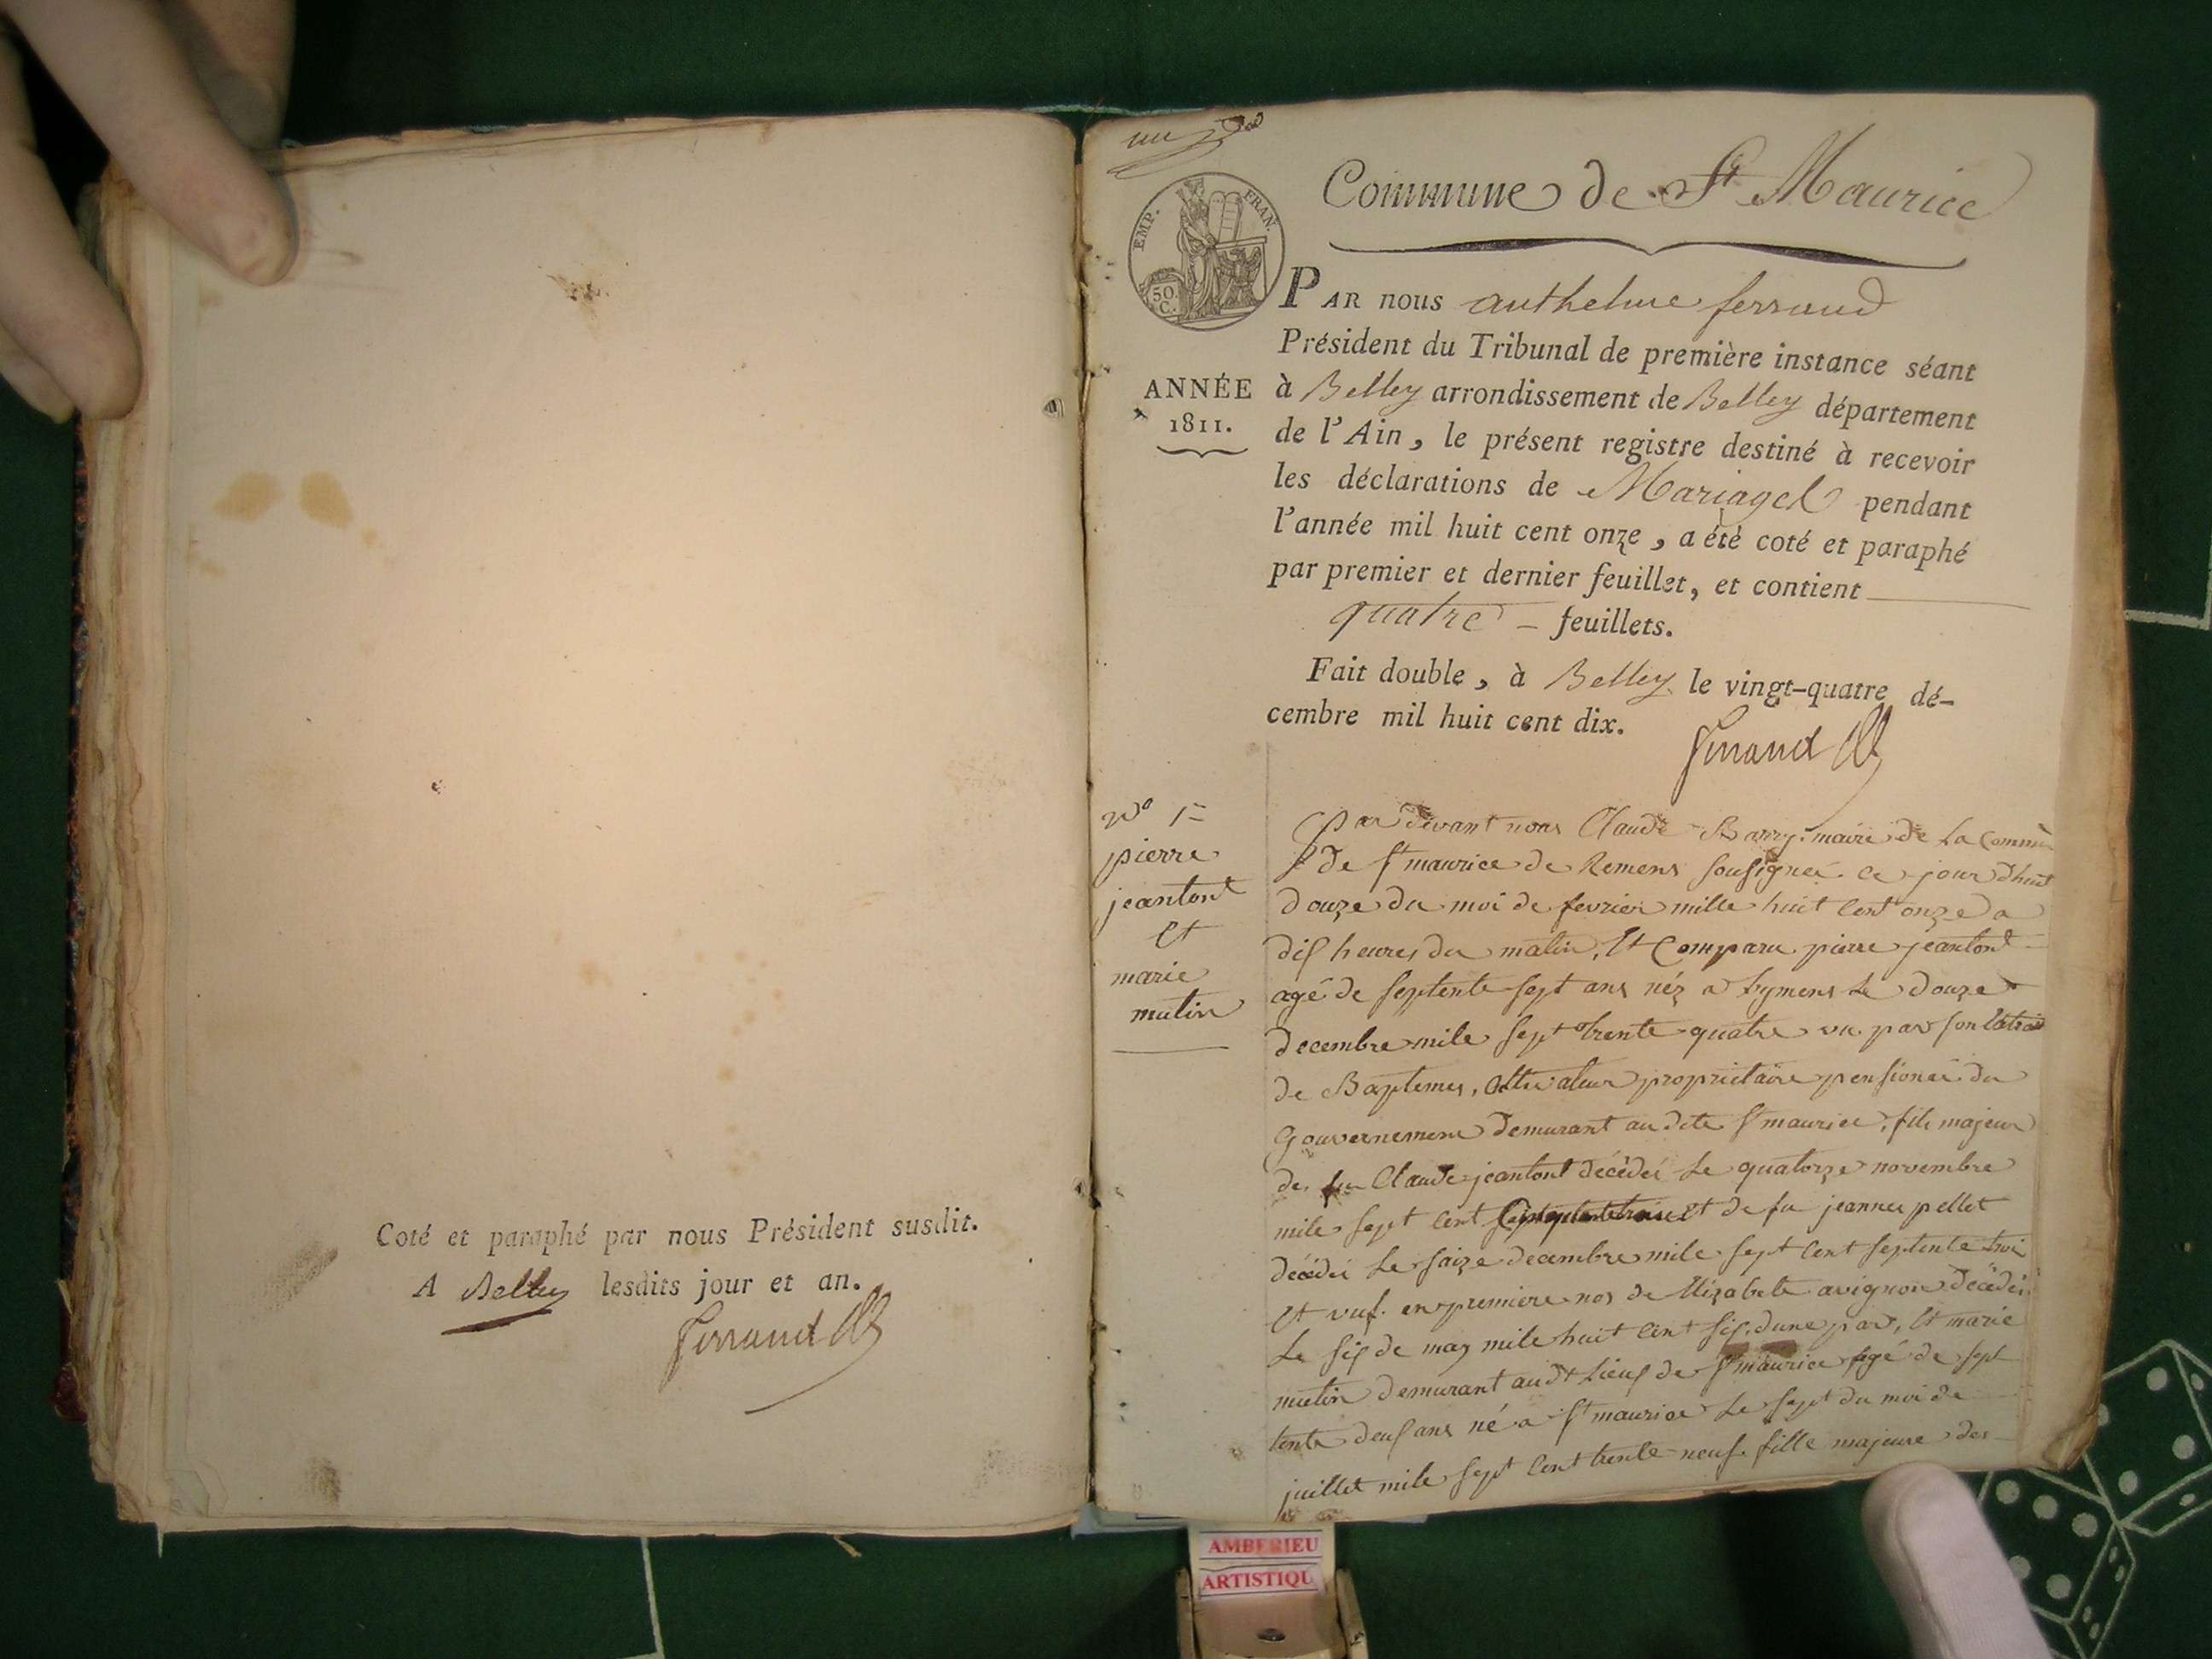 Coté et paraphé par nous Président susdit.
A Belley lesdits jour et an.
Ferrand
un
EMP. FRAN.
50 C.
Commune de St Maurice
ANNÉE
1811.
PAR nous anthelme ferrand
Président du Tribunal de première instance séant
à Belley arrondissement de Belley département
de l'Ain, le présent registre destiné à recevoir
les déclarations de Mariages pendant
l'année mil huit cent onze, a été coté et paraphé
par premier et dernier feuillet, et contient
quatre feuillets.
Fait double, à Belley le vingt-quatre dé-
cembre mil huit cent dix.
Ferrand
No 1
pierre
jeantont
et
marie
mutin
Par devant nous Claude Barry maire de la Commune
de St maurice de Remens sousignéé ce jour dhuit
douze du moi de fevrier mille huit cent onze a
dis heures du matin, Et Comparu pierre jeantont
agé de septente sept ans néz a le douze
decembre mile sept trente quatre vu par son
de Baptemes, proprietaire pensionéé du
Gouvernement demurant au dite St maurice, fils majeur
de fu Claude jeantont décédéé Le quatorze novembre
mile sept cent et de fu jeanne pellet
décédéé Le saize decembre mile sept cent septente troi
Et vuf. en premiere nos de Elizabete avignon décédéé
Le sis de may mile huit cent sis. dune par, Et marie
mutin demurant audt Lieus de St maurice agé de sept
tente deus ans né a St maurice Le sept du moi de
juillet mile sept cent trente neuf. fille majeure des
AMBERIEU
ARTISTIQU